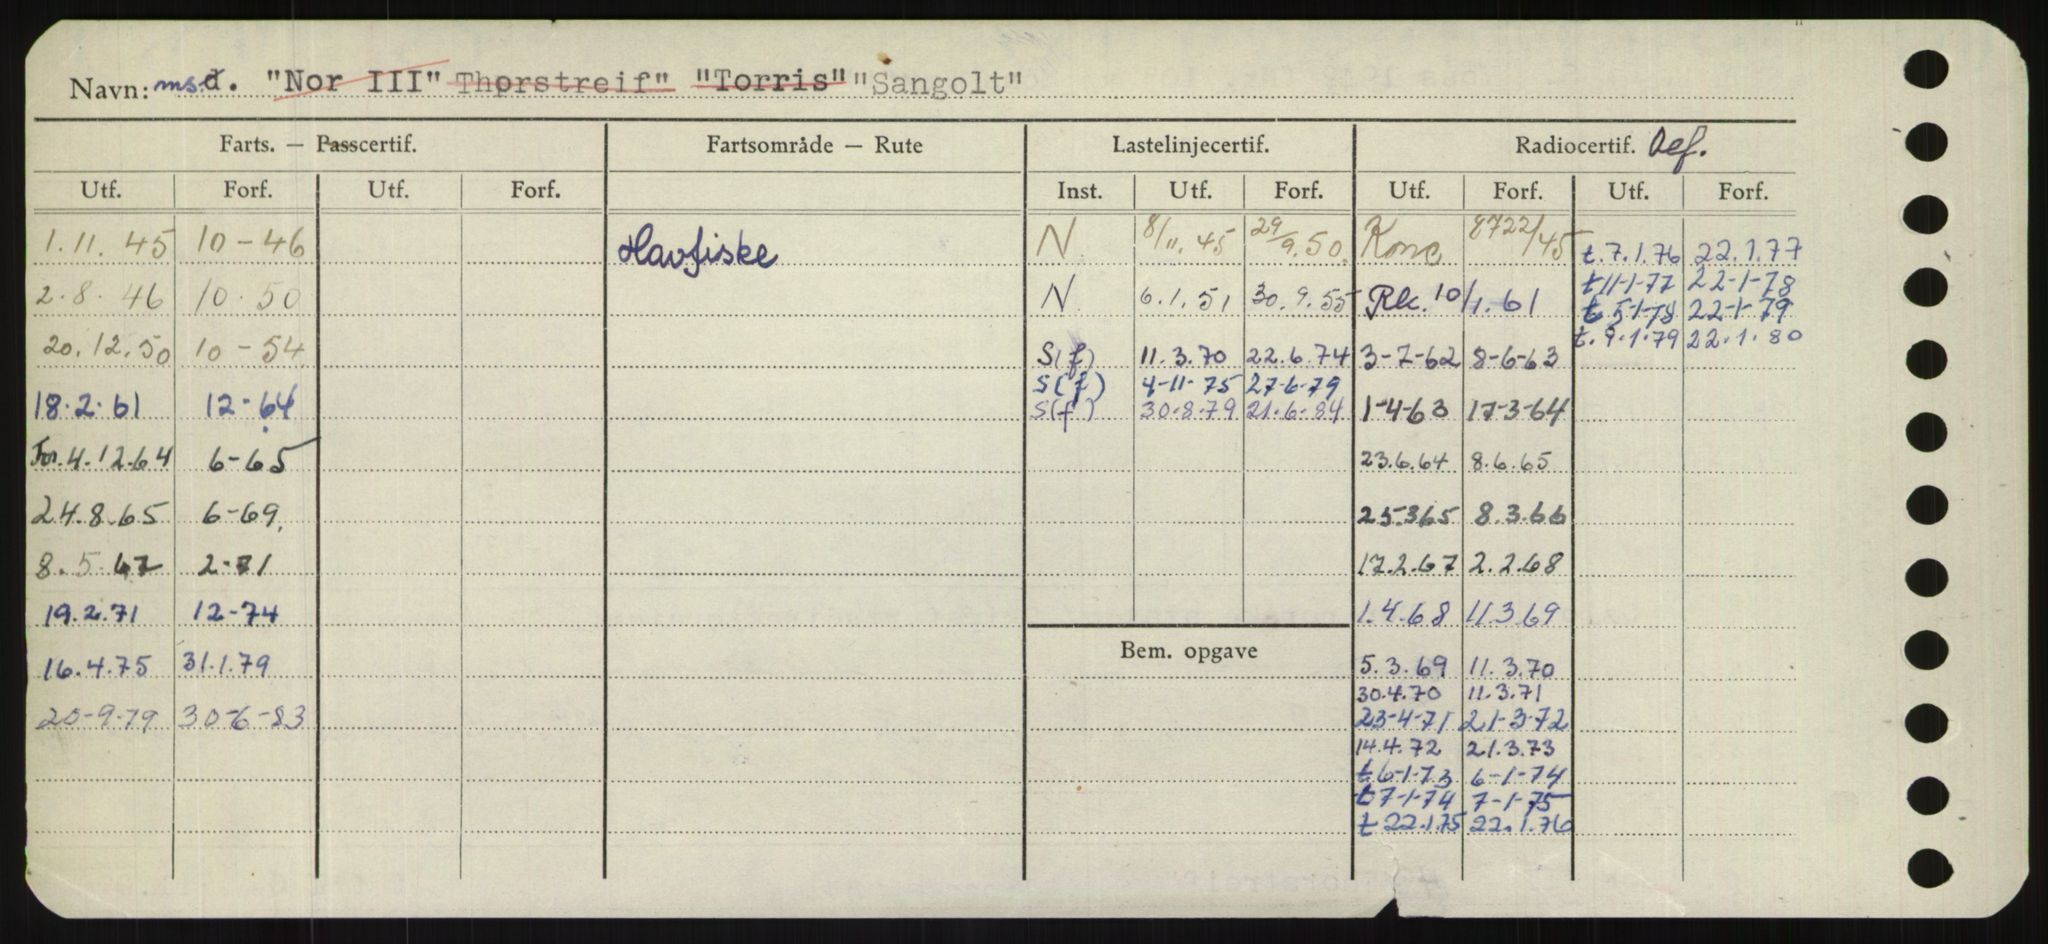 Navn: ms d. "Nor III" Thorstreif" "Torris" "Sangolt"
Farts. — Passcertif. Fartsområde — Rute Lastelinjecertif. Radiocertif. Def.
Utf. Forf. Utf. Forf. Inst. Utf. Forf. Utf. Forf. Utf. Forf.
1.11.45 10-46 Havfiske N 8/11.45 29/9.50. Konc. 8722/45 t.7.1.76 22.1.77
t11-1-77 22-1-78
2.8.46 10.50 N. 6.1.51 30.9.55 Rk. 10/1.61 t 5-1-78 22-1-79
t.9.1.79 22.1.80
20.12.50 10-54 S(f) 11.3.70 22.6.74 3-7-62 8-6-63
S(f) 4-11-75 27-6-79
18.2.61 12-64 S(f) 30-8-79 21.6.84 1-4-63 17-3-64
For. 4.12.64 6-65 23.6.64 8.6.65
24.8.65 6-69. 25.3.65 8.3.66
8.5.67 2-71 17.2.67 2.2.68
19.2.71 12-74 1.4.68 11.3.69
Bem. opgave
16.4.75 31.1.79 5.3.69 11.3.70
30.4.70 11.3.71
20-9-79 30-6-83 23-4-71 21-3-72
14.4.72 21.3.73
t6-1-73 6-1-74
t7-1-74 7-1-75
t 22.1.75 22.1.76